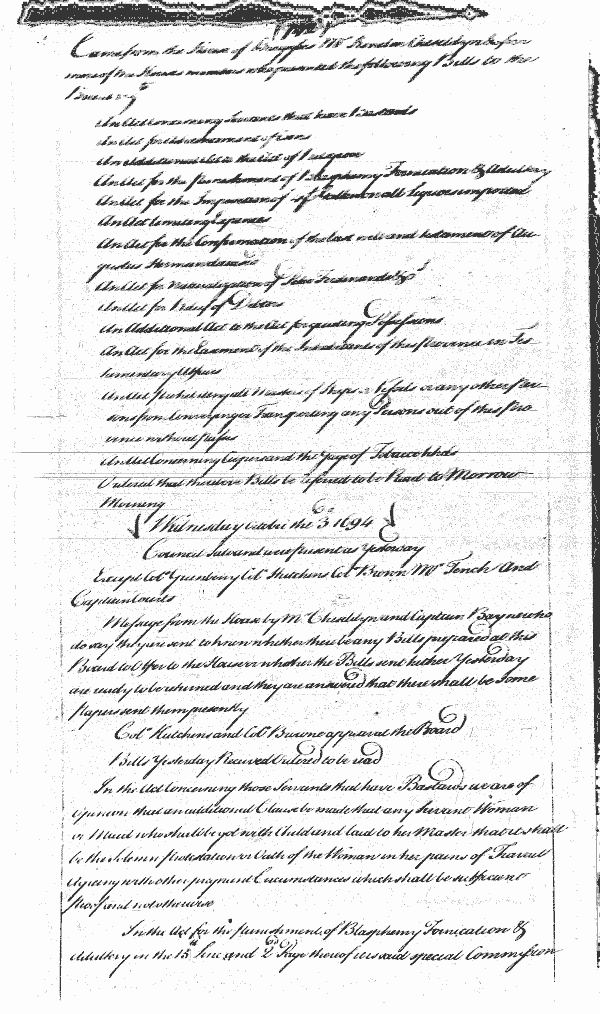 Came from the House of Burgesses Mr Kenelm Cheseldyn & Seven
more of the Houses members who presented the following Bills to the
Board vizt
An Act concerning Servants that have Bastards
An Act for advancement of
An Additional Act to the Act of
An Act for the Punishment of Blasphemy Fornication & Adultery
An Act for the Imposition of on all Liquors imported
An Act limiting Expences
An Act for the Confirmation of the last will and testament of Au-
gustus Herman
An Act for naturalization of Peter Ferdinando &c
An Act for Relief of Debtors
An Additional Act to the Act for quieting Possessions
An Act for the Easment of the Inhabitants of this Province in Tes-
tamentary Affairs
An Act prohibiting all Masters of Ships or Vessels or any other Per-
sons from Conveying or Transporting any Persons out of this Pro-
vince without passes
An Act Concerning Coopers and the Gage of Tobacco hhds
Ordered that these Bills be referred to be Read to Morrow
Morning
Wednesday October the 3d 1694
Council Sat and were present as Yesterday
Except Col. Greenberry Col. Hutchens Col Brown Mr Tench And
Captain Courts
Message from the House by Mr Cheseldyn and Captain Bayne who
do say they are sent to know whether there be any Bills prepared at this
Board to Offer to the House or whether the Bills sent hither Yesterday
are ready to be returned and they are answered that there shall be Some
Papers sent them presently
Colo Hutchens and Colo Browne appeared at the Board
Bills Yesterday Received Ordered to be read
In the Act Concerning those Servants that have Bastards we are of
Opinion that an additional Clause be made that any Servant Woman
or Maid who shall be got with Child and laid to her Master that it shall
be the Solemn Protestation or Oath of the Woman in her pains of Travail
Agreeing with other pregnant Circumstances which shall be sufficient
Proof and not otherwise
In the Act for the punishment of Blasphemy Fornication &
Adultery in the 15th Line and 2d Page thereof it is said special Commission